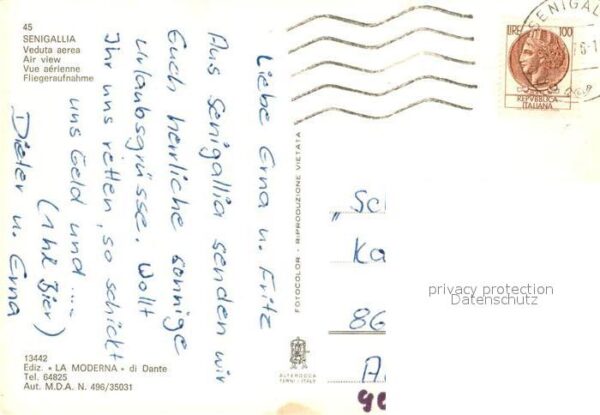 45
SENIGALLIA
Veduta aerea
Air view
Vue aérienne
Fliegeraufnahme
Liebe Erna u. Fritz
Aus Senigallia senden wir
Euch herrliche sonnige
Urlaubsgrüsse. Wollt
Ihr uns retten, so schickt
uns Geld und....
(1 hl Bier)
Dieter u. Erna
13442
Ediz. • LA MODERNA • di Dante
Tel. 64825
Aut. M.D.A. N. 496/35031
FOTOCOLOR - RIPRODUZIONE VIETATA
ALTEROCCA
TERNI - ITALY
SENIGAL
LIRE 100
REPVBBLICA
ITALIANA
"Sc
Ka
86
privacy protection
Datenschutz